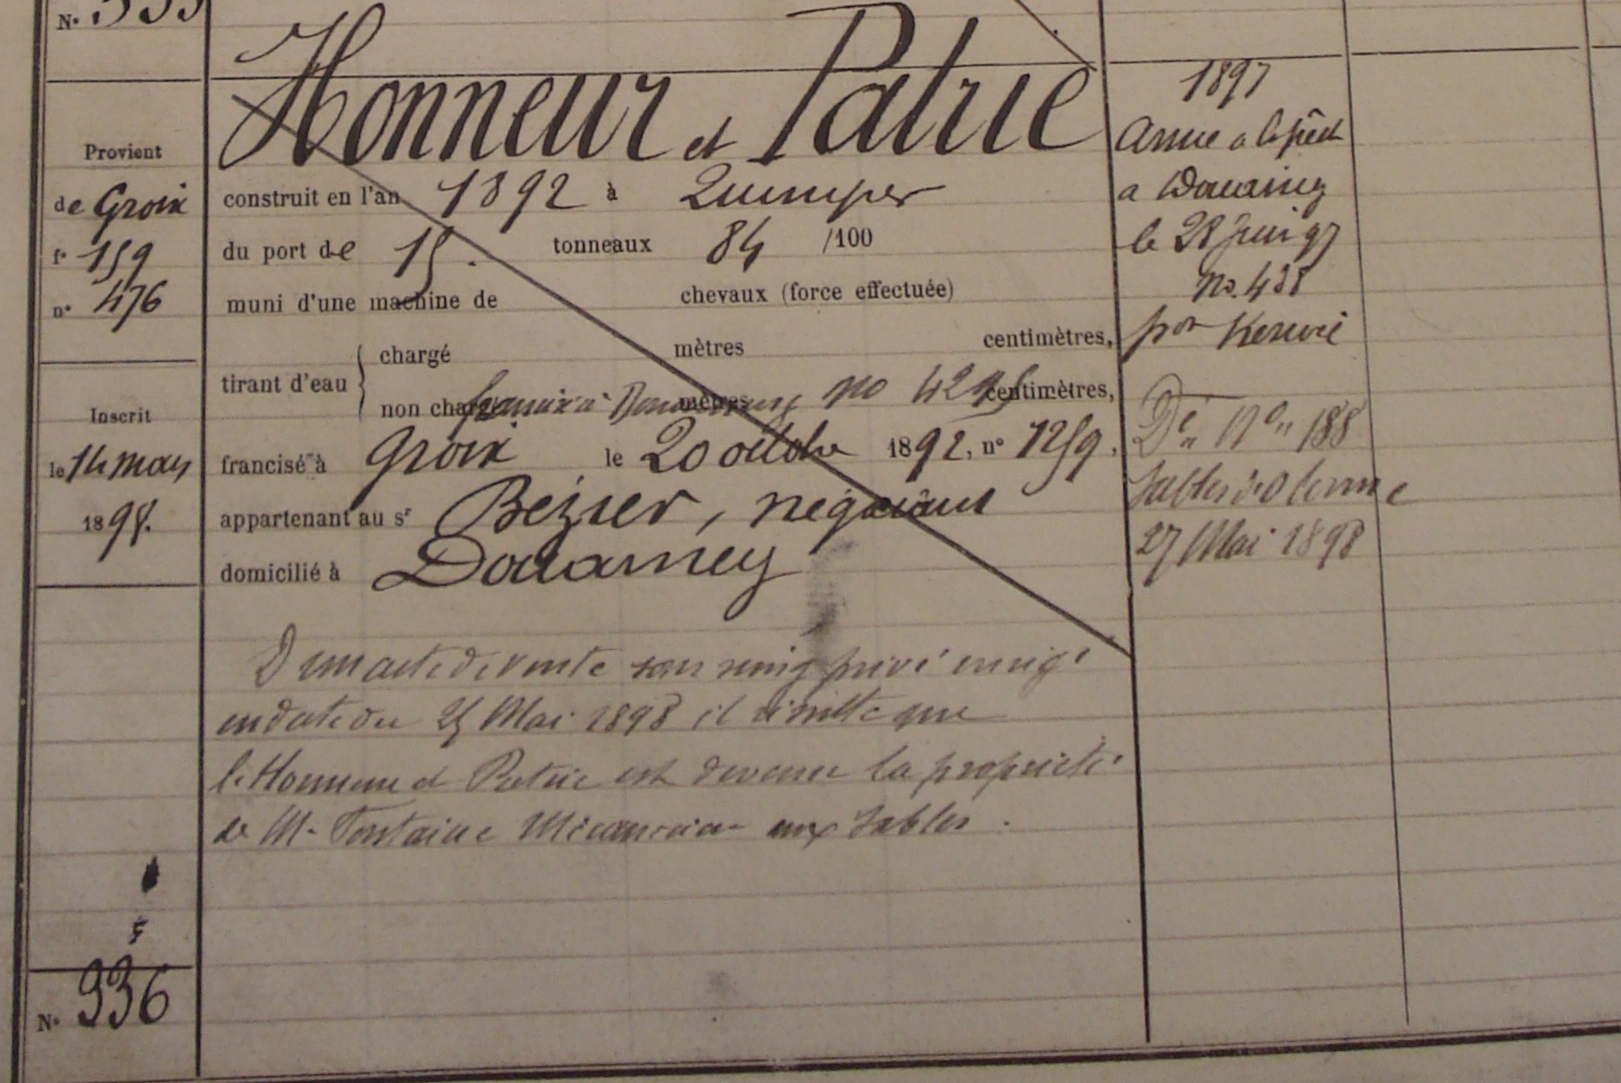 N° 335
Honneur et Patrie
Provient
de Groix
f° 159
n° 476
construit en l'an 1892 à Quimper
du port de 15. tonneaux 84 /100
muni d'une machine de chevaux (force effectuée)
tirant d'eau
chargé mètres centimètres,
non chargé mètres centimètres,
no
francisé à Groix le 20 octobre 1892, n° 1259.
appartenant au sr Bézier, négociant
domicilié à Douarnez
Inscrit
le 14 mars
1894.
D'un acte de vente sous seing privé enrigé
en date du 25 Mai 1898 il résulte que
le Honneur et Patrie est devenu la propriété
de M. Fontaine aux Sables.
1897
Armé a la pêche
a Douarnez
le 28 Juin 97
no. 438
par
Dé Nº 188
Sables d'Olonne
27 Mai 1898
N° 336